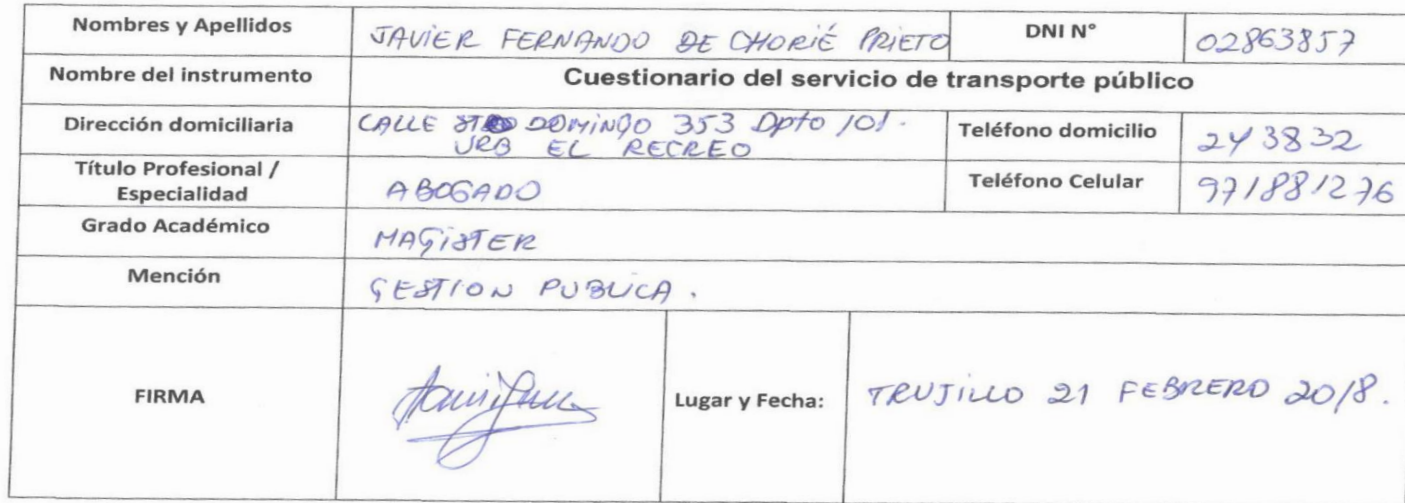 Nombres y Apellidos JAVIER FERNANDO DE CHORIÉ PRIETO DNI N° 02863857
Nombre del instrumento Cuestionario del servicio de transporte público
Dirección domiciliaria CALLE STO DOMINGO 353 Dpto 101.
URB EL RECREO
Teléfono domicilio 243832
Título Profesional /
Especialidad
ABOGADO Teléfono Celular 971881276
Grado Académico MAGISTER
Mención GESTION PUBLICA.
FIRMA Lugar y Fecha: TRUJILLO 21 FEBRERO 2018.